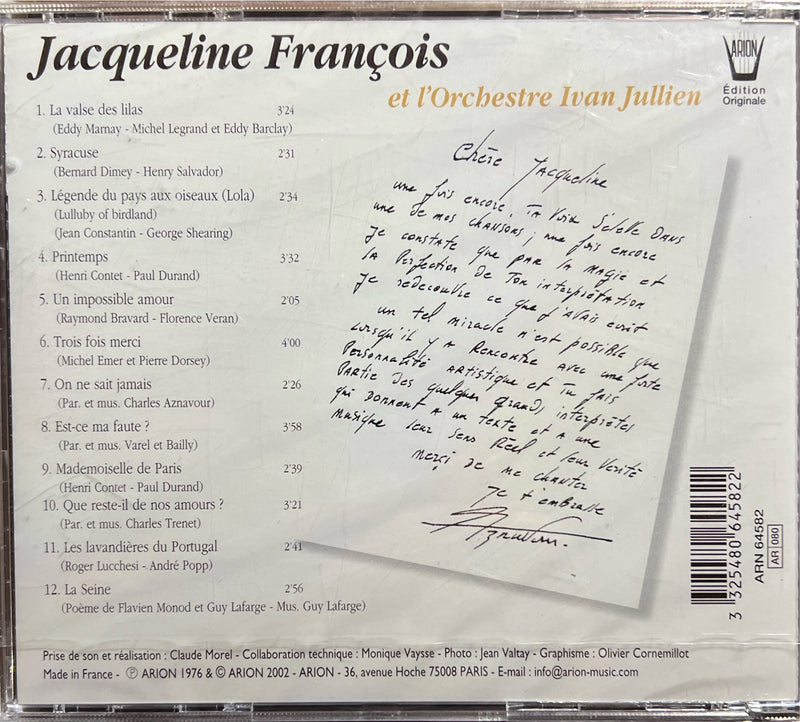 Jacqueline François
et l'Orchestre Ivan Jullien
ARION
Édition
Originale
1. La valse des lilas 3'24
(Eddy Marnay - Michel Legrand et Eddy Barclay)
2. Syracuse 2'31
(Bernard Dimey - Henry Salvador)
3. Légende du pays aux oiseaux (Lola) 2'34
(Lulluby of birdland)
(Jean Constantin - George Shearing)
4. Printemps 3'32
(Henri Contet - Paul Durand)
5. Un impossible amour 2'05
(Raymond Bravard - Florence Veran)
6. Trois fois merci 4'00
(Michel Emer et Pierre Dorsey)
7. On ne sait jamais 2'26
(Par. et mus. Charles Aznavour)
8. Est-ce ma faute ? 3'58
(Par. et mus. Varel et Bailly)
9. Mademoiselle de Paris 2'39
(Henri Contet - Paul Durand)
10. Que reste-il de nos amours ? 3'21
(Par. et mus. Charles Trenet)
11. Les lavandières du Portugal 2'41
(Roger Lucchesi - André Popp)
12. La Seine 2'56
(Poème de Flavien Monod et Guy Lafarge - Mus. Guy Lafarge)
Chère Jacqueline
une fois encore, ta voix s'élève dans
une de mes chansons ; une fois encore
je constate que par la magie et
la perfection de ton interprétation
je redécouvre ce que j'avais écrit
un tel miracle n'est possible que
lorsqu'il y a rencontre avec une forte
personnalité artistique et tu fais
partie des quelques grands interprètes
qui donnent a un texte et a une
musique leur sens réel et leur vérité
merci de me chanter
je t'embrasse
Aznavour
3 325480 645822
ARN 64582
AR 080
Prise de son et réalisation : Claude Morel - Collaboration technique : Monique Vaysse - Photo : Jean Valtay - Graphisme : Olivier Cornemillot
Made in France - ℗ ARION 1976 & © ARION 2002 - ARION - 36, avenue Hoche 75008 PARIS - E-mail : info@arion-music.com